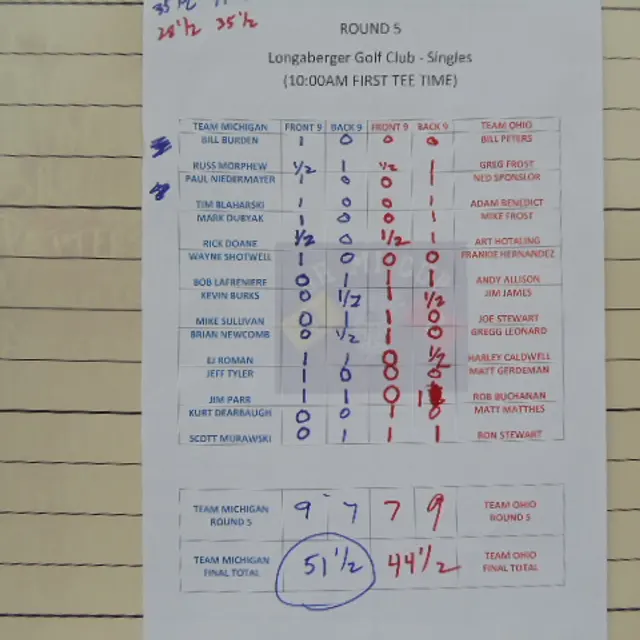 28 1/2 35 1/2
ROUND 5
Longaberger Golf Club - Singles
(10:00AM FIRST TEE TIME)
TEAM MICHIGAN FRONT 9 BACK 9 FRONT 9 BACK 9 TEAM OHIO
BILL BURDEN 1 0 0 0 BILL PETERS
RUSS MORPHEW 1/2 1 1/2 1 GREG FROST
PAUL NIEDERMAYER 1 0 0 NED SPONSLOR
TIM BLAHARSKI 1 0 0 1 ADAM BENEDICT
MARK DUBYAK 1 0 0 1 MIKE FROST
RICK DOANE 1/2 0 1/2 1 ART HOTALING
WAYNE SHOTWELL 1 0 0 0 FRANKIE HERNANDEZ
BOB LAFRENIERE 0 1 1 1 ANDY ALLISON
KEVIN BURKS 0 1/2 1 1/2 JIM JAMES
MIKE SULLIVAN 0 1 1 0 JOE STEWART
BRIAN NEWCOMB 0 1/2 1 0 GREGG LEONARD
EJ ROMAN 1 1 0 1/2 HARLEY CALDWELL
JEFF TYLER 1 0 0 0 MATT GERDEMAN
JIM PARR 1 1 0 1 ROB BUCHANAN
KURT DEARBAUGH 0 0 1 0 MATT MATTHES
SCOTT MURAWSKI 0 1 1 1 RON STEWART
TEAM MICHIGAN ROUND 5 9 7 7 9 TEAM OHIO ROUND 5
TEAM MICHIGAN FINAL TOTAL 51 1/2 44 1/2 TEAM OHIO FINAL TOTAL